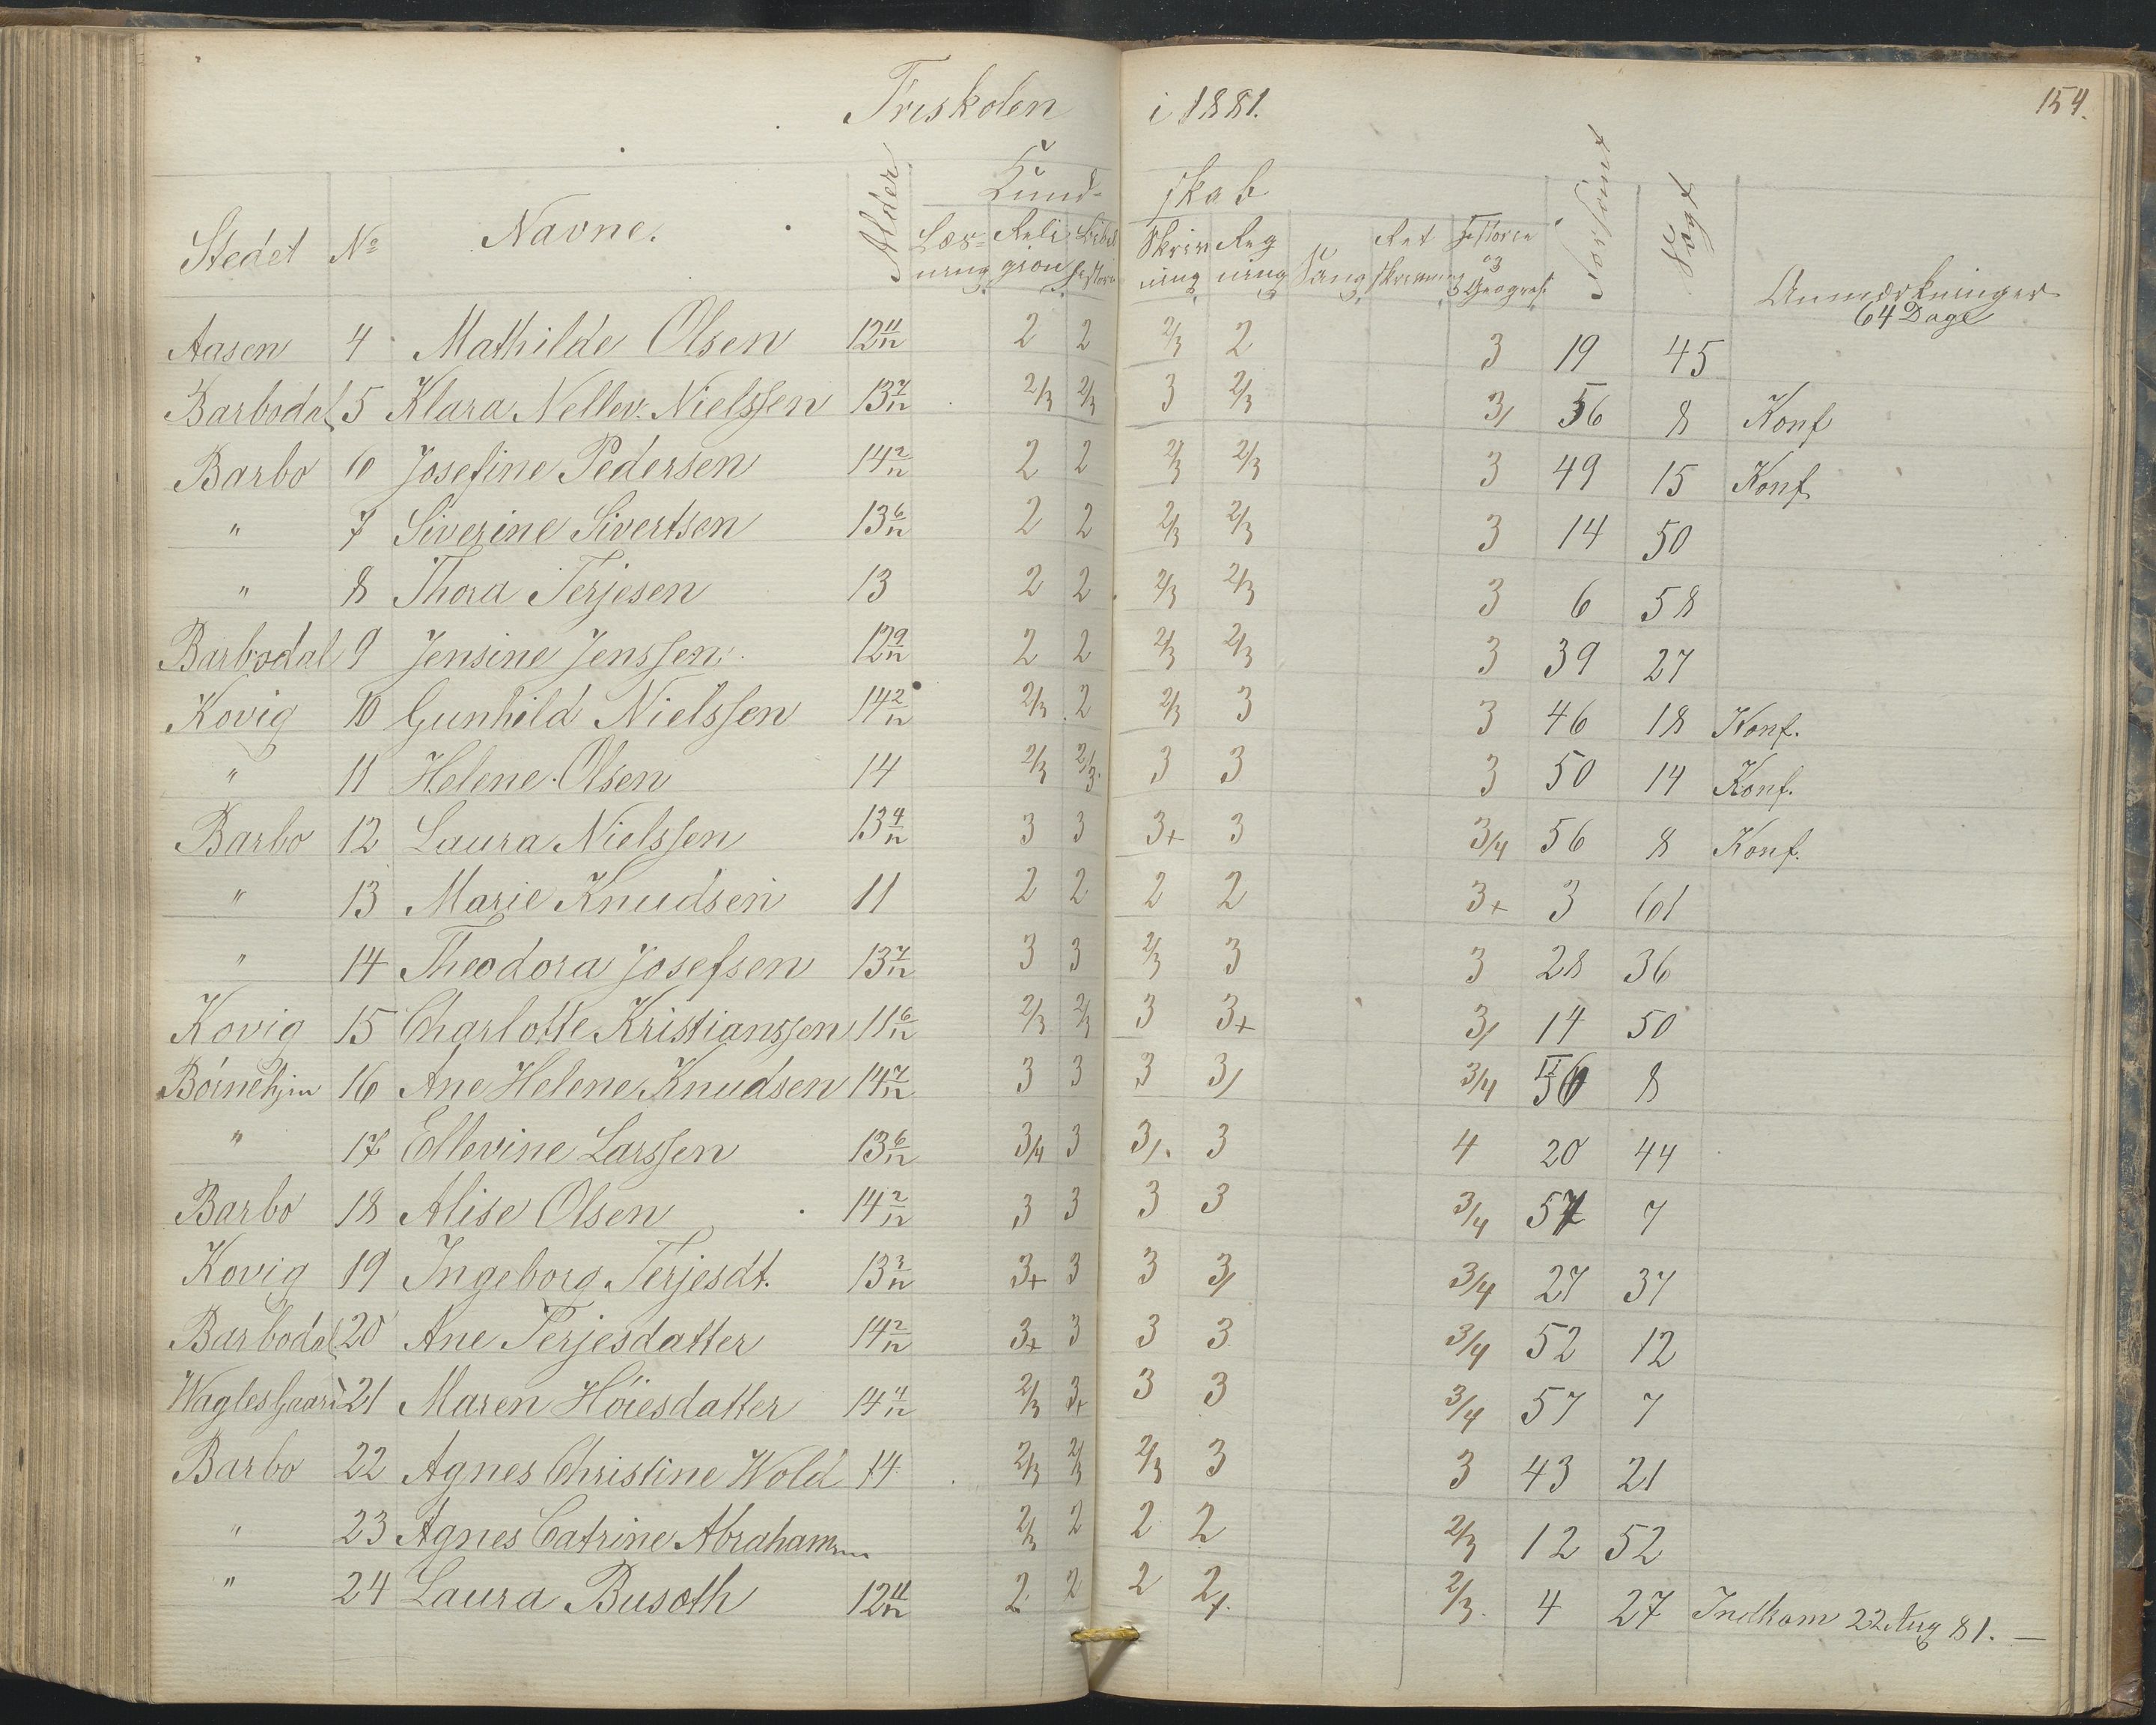 Friskolen i 1881. 154.
Stedet No Navne. Alder Kund- skab Forsømt Søgt Anmærkninger
Læs- Reli Bibel Skriv Reg Ret Historie
ning gion historie ning ning Sang skrivning og Geografi
64 Dage
Aasen 4 Mathilde Olsen 12 11/12 2 2 2/3 2 3 19 45
Barbodal 5 Klara Nellev. Nielssen 13 7/12 2/3 2/3 3 2/3 3/ 56 8 Konf
Barbo 6 Josefine Pedersen 14 2/12 2 2 2/3 2/3 3 49 15 Konf
" 7 Siverine Sivertsen 13 6/12 2 2 2/3 2/3 3 14 50
" 8 Thora Terjesen 13 2 2 2/3 2/3 3 6 58
Barbodal 9 Jensine Jenssen 12 9/12 2 2 2/3 2/3 3 39 27
Kovig 10 Gunhild Nielssen 14 2/12 2/3 2 2/3 3 3 46 18 Konf.
" 11 Helene Olsen 14 2/3 2/3 3 3 3 50 14 Konf.
Barbo 12 Laura Nielssen 13 4/12 3 3 3+ 3 3/4 56 8 Konf.
" 13 Marie Knudsen 11 2 2 2 2 3+ 3 61
" 14 Theodora Josefsen 13 7/12 3 3 2/3 3 3 28 36
Kovig 15 Charlotte Kristianssen 11 6/12 2/3 2/3 3 3+ 3/ 14 50
Börnehjm 16 Ane Helene Knudsen 14 7/12 3 3 3 3/ 3/4 56 8
" 17 Ellevine Larssen 13 6/12 3/4 3 3/. 3 4 20 44
Barbo 18 Alise Olsen 14 2/12 3 3 3 3 3/4 57 7
Kovig 19 Ingeborg Terjesdt. 13 3/12 3+ 3 3 3/ 3/4 27 37
Barbodal 20 Ane Terjesdatter 14 2/12 3+ 3 3 3 3/4 52 12
Waglesgaard 21 Maren Höiesdatter 14 4/12 2/3 3+ 3 3 3/4 57 7
Barbo 22 Agnes Christine Wold 14 2/3 2/3 2/3 3 3 43 21
" 23 Agnes Catrine Abrahamsen 2/3 2 2 2 2/3 12 52
" 24 Laura Busoth 12 11/12 2 2 2 2/. 2/3. 4 27 Indkom 22 Aug 81. —